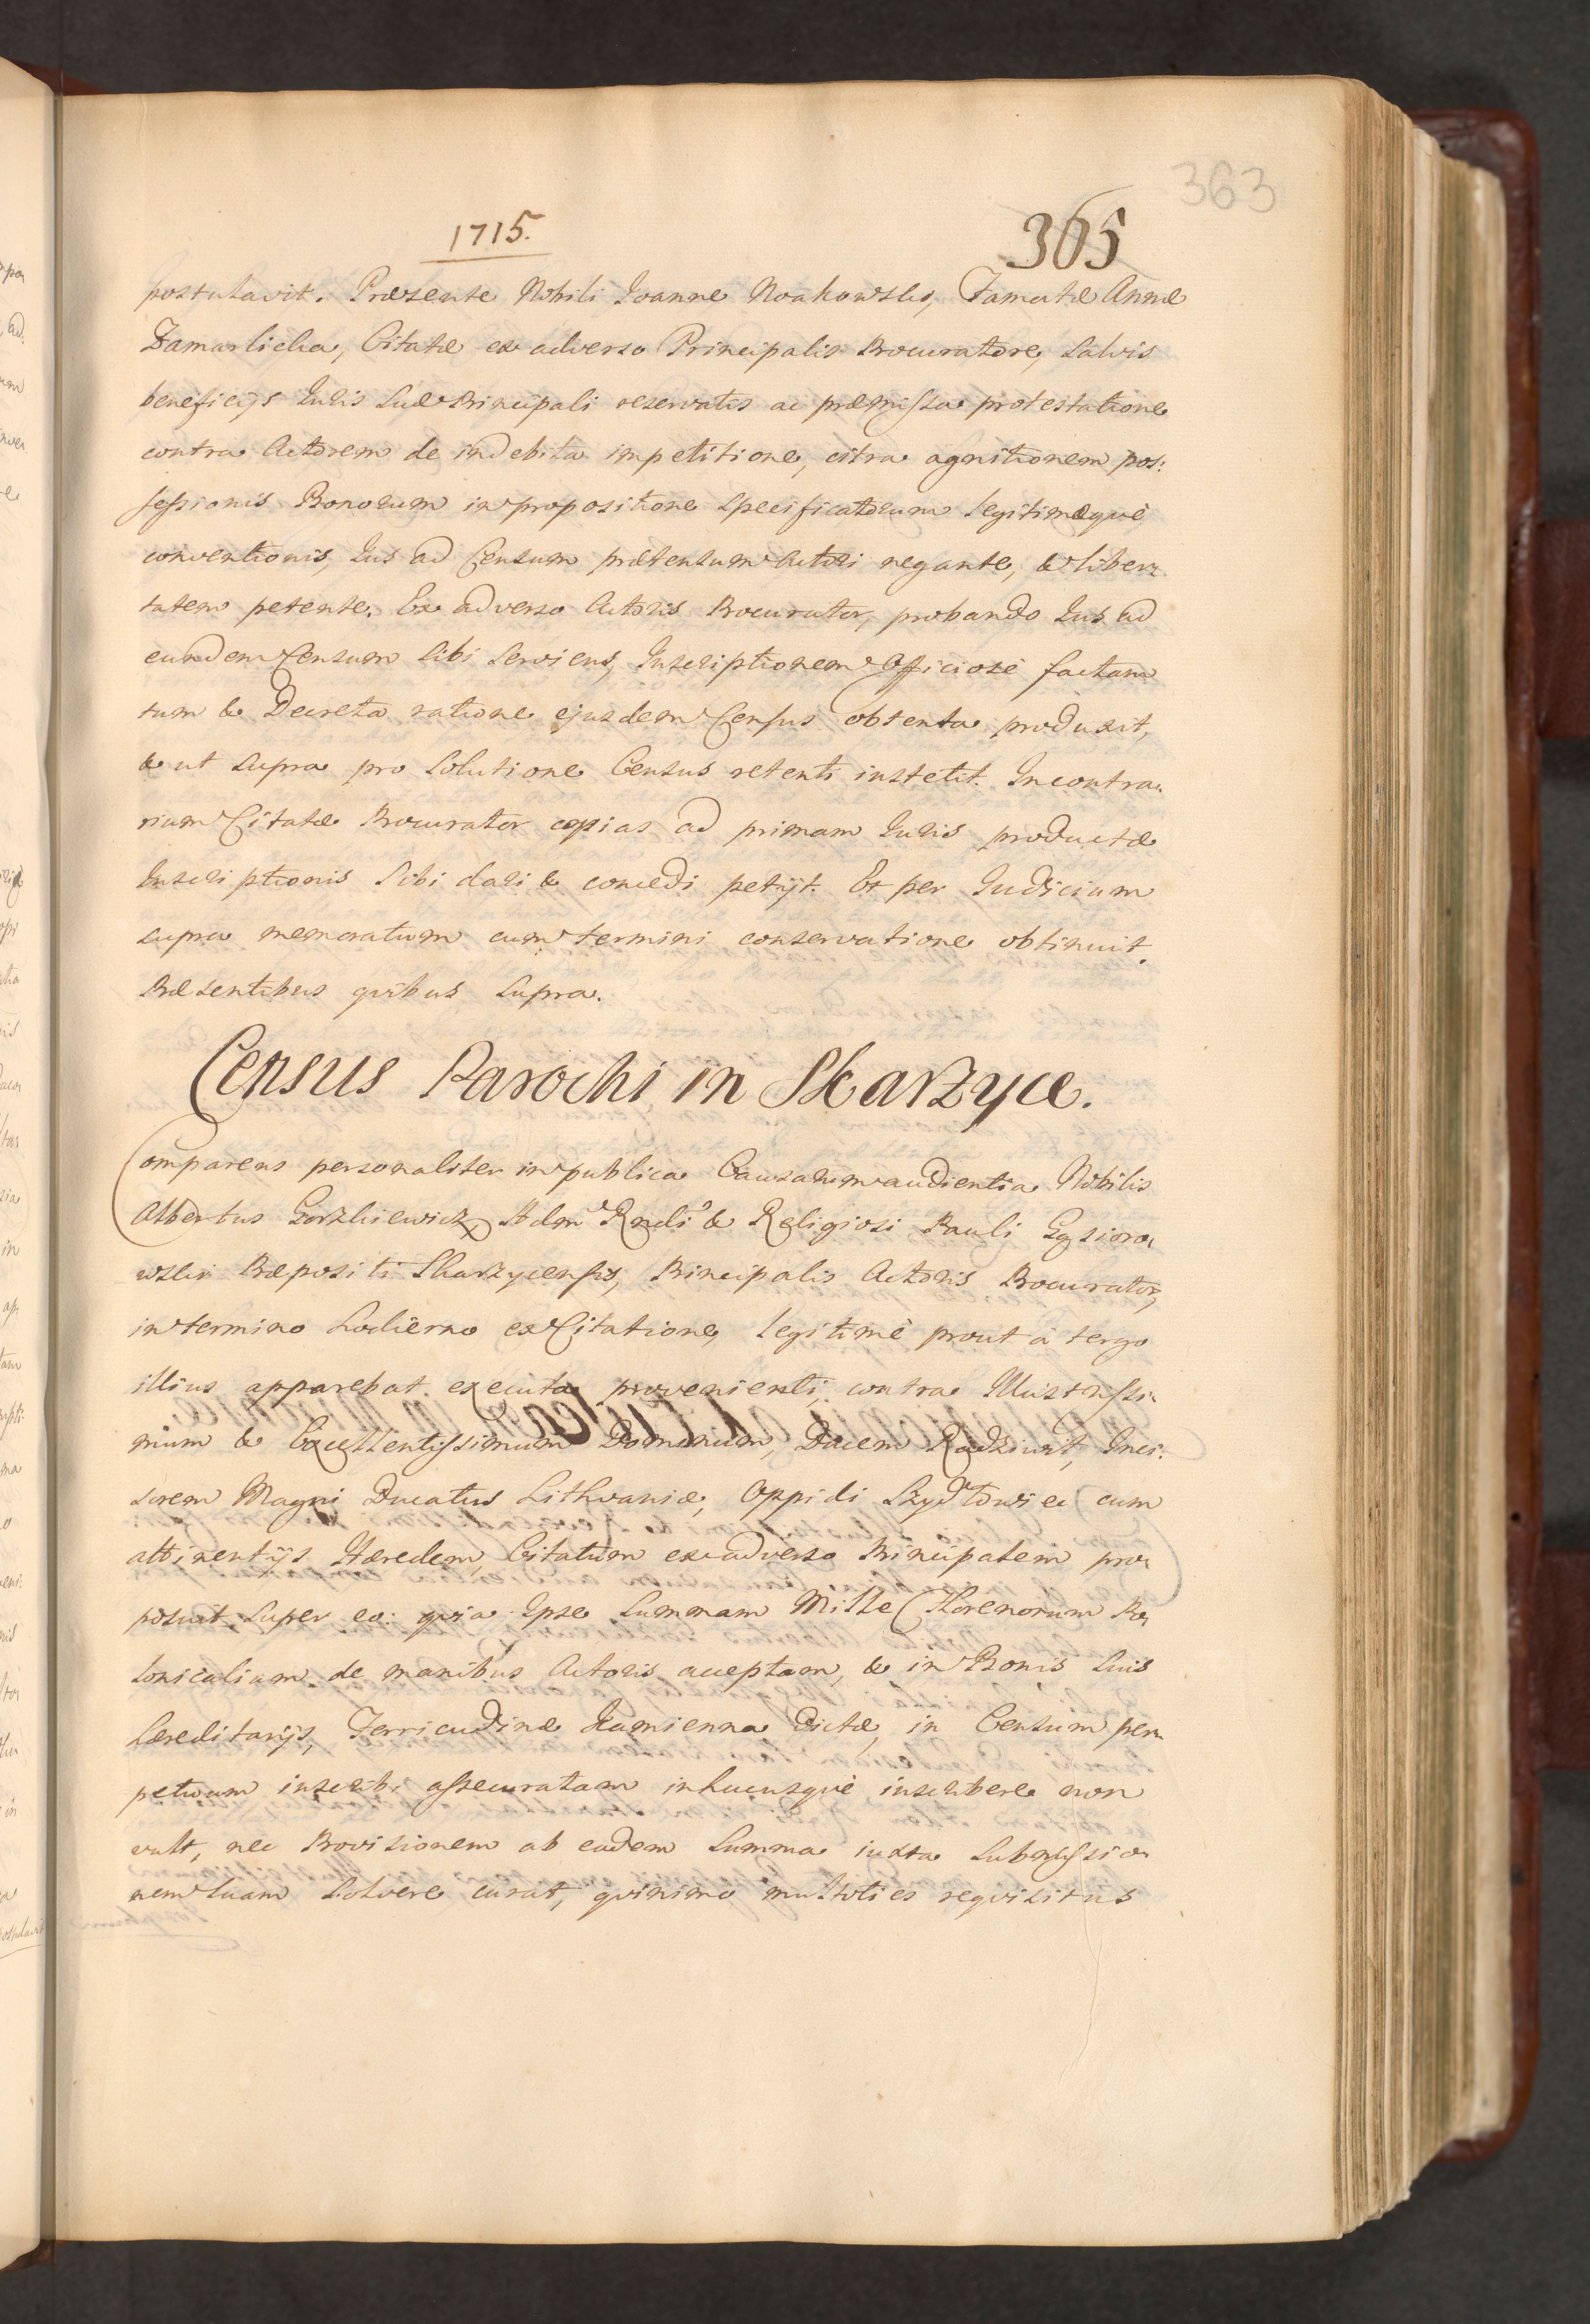 363
1715.
365
postulavit. Præsente Nobili Joanne Noakowski, Famatæ Annæ
Citatæ ex adverso Principalis Procuratore, salvis
beneficijs Iuris suæ Principali reservatis ac præmissa protestatione
contra Actorem de indebita impetitione, citra agnitionem pos:
sessionis Bonorum in propositione specificatorum legitimæquè
conventionis, Ius ad Censum prætensum Actori negante, & liber
tatem petente. Ex adverso Actoris Procurator, probando Ius ad
eundem Censum sibi serviens, Inscriptionem Officiosè factam
tum & Decreta ratione ejusdem Census obtenta produxit,
& ut supra pro solutione Census retenti institit. In contra
rium Citatæ Procurator copias ad primam Iuris productæ
Inscriptionis sibi dari & concedi petijt. Et per Iudicium
supra memoratum cum termini conservatione obtinuit.
Præsentibus quibus supra.
Census Parochi in Skarzyce.
Comparens personaliter in publica Causarum audientia Nobilis
Albertus Gorzkiewicz, Adm Rndi & Religiosi Pauli Gąsioro
wski Præpositi Skarzycensis, Principalis Actoris Procurator,
in termino hodierno ex Citatione, legitimè prout à tergo
illius apparebat executa provenienti, contra Illustrissi
mum & Excellentissimum Dominum, Ducem Radziwił, Inci:
sorem Magni Ducatus Lithvaniæ, Oppidi Szydłowiec cum
attinentijs Hæredem, Citatum ex adverso Principalem pro
posuit, super eo: quia Ipse summam Mille Florenorum Po
lonicalium de manibus Actoris acceptam, & in Bonis suis
hæreditarijs, Ferricudinæ Kamienna dictæ, in Censum per
petuum inscribi assecuratam in hucusquè inscribere non
vult, nec Provisionem ab eadem summa iuxta submissio
nem suam solvere curat, quinimo multoties requisitus